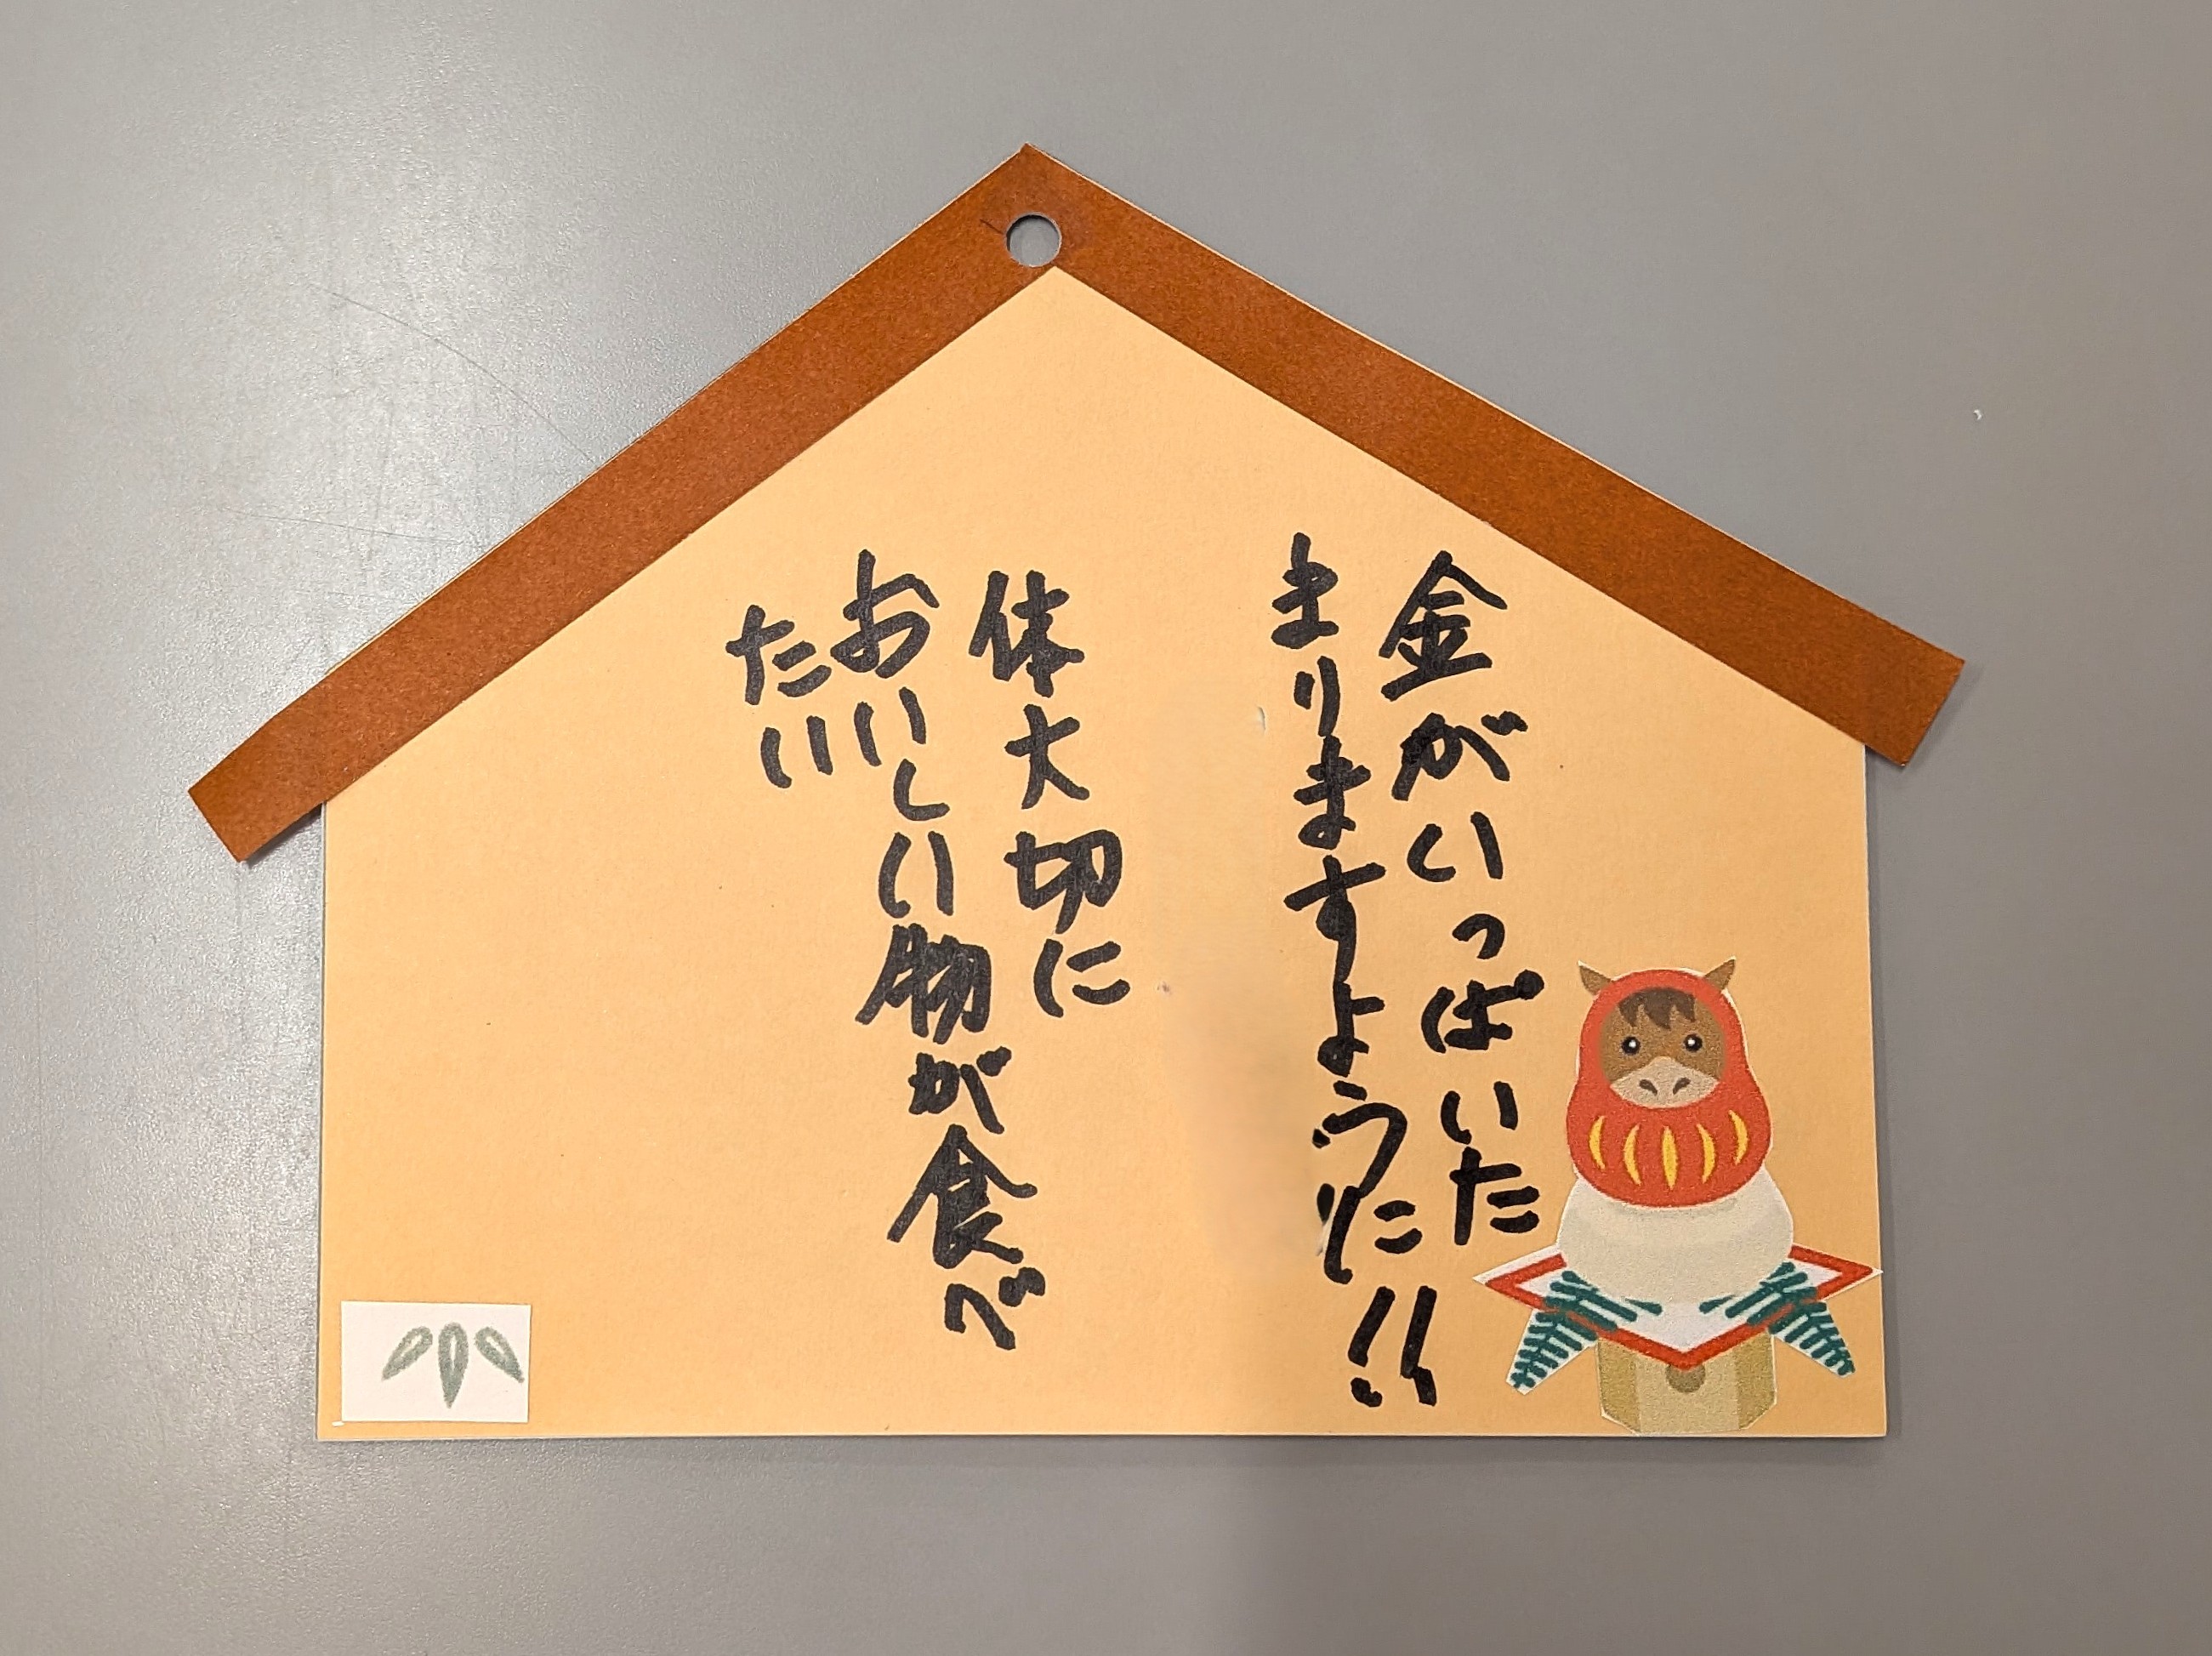 金がいっぱいた
まりますように!!
体大切に
おいしい物が食べ
たい